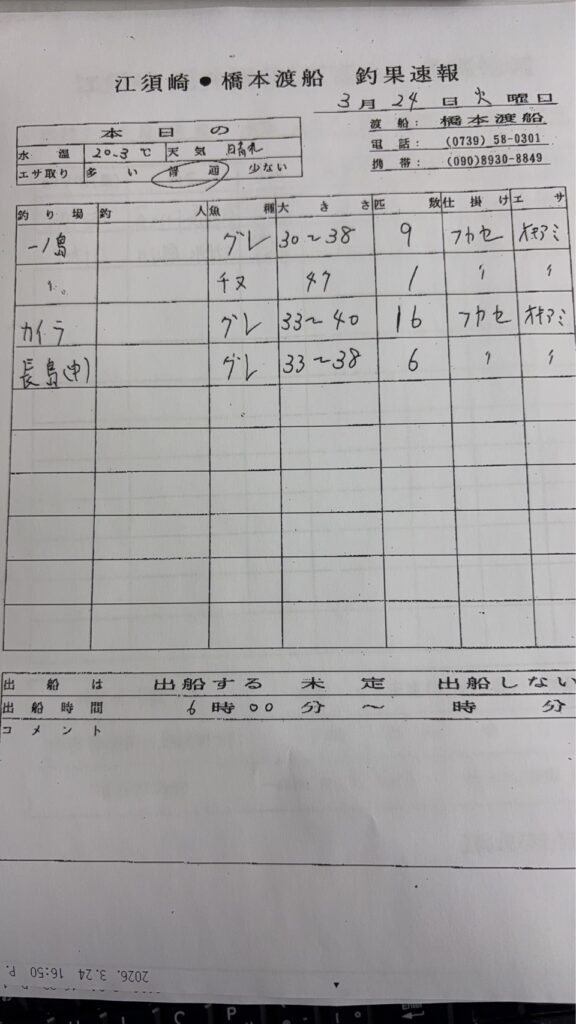 江須崎●橋本渡船 釣果速報
3月24日火曜日
本日の
水温 20.3℃ 天気 晴れ
エサ取り 多い 普通 少ない
渡船: 橋本渡船
電話: (0739) 58-0301
携帯: (090)8930-8849
釣り場 釣人 魚種 大きさ 匹数 仕掛け エサ
一ノ島 グレ 30〜38 9 フカセ オキアミ
〃 チヌ 47 1 〃 〃
カイラ グレ 33〜40 16 フカセ オキアミ
長島(中) グレ 33〜38 6 〃 〃
出船は 出船する 未定 出船しない
出船時間 6時00分〜 時 分
コメント
2026. 3.24 16:50 P.